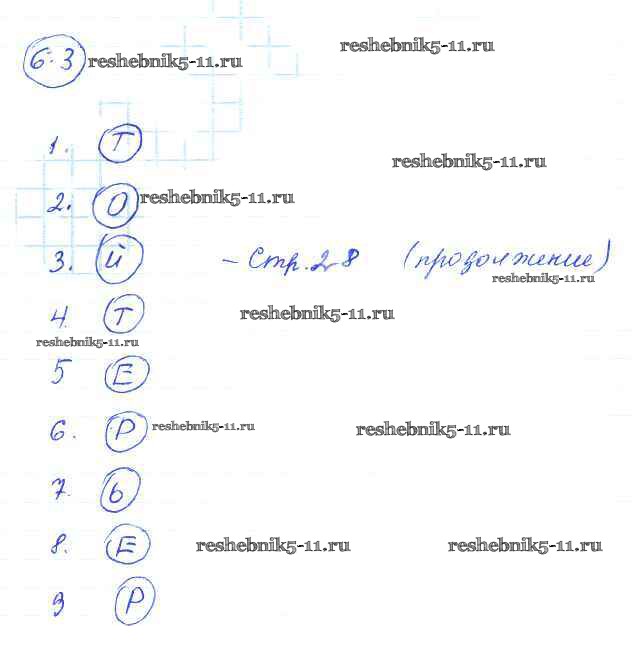 reshebnik5-11.ru
6.3 reshebnik5-11.ru
1. Т
reshebnik5-11.ru
2. О reshebnik5-11.ru
3. Й – Стр. 28 (продолжение)
reshebnik5-11.ru
4. Т reshebnik5-11.ru
reshebnik5-11.ru
5 Е
6. Р reshebnik5-11.ru reshebnik5-11.ru
7. Ь
8. Е reshebnik5-11.ru reshebnik5-11.ru
9 Р